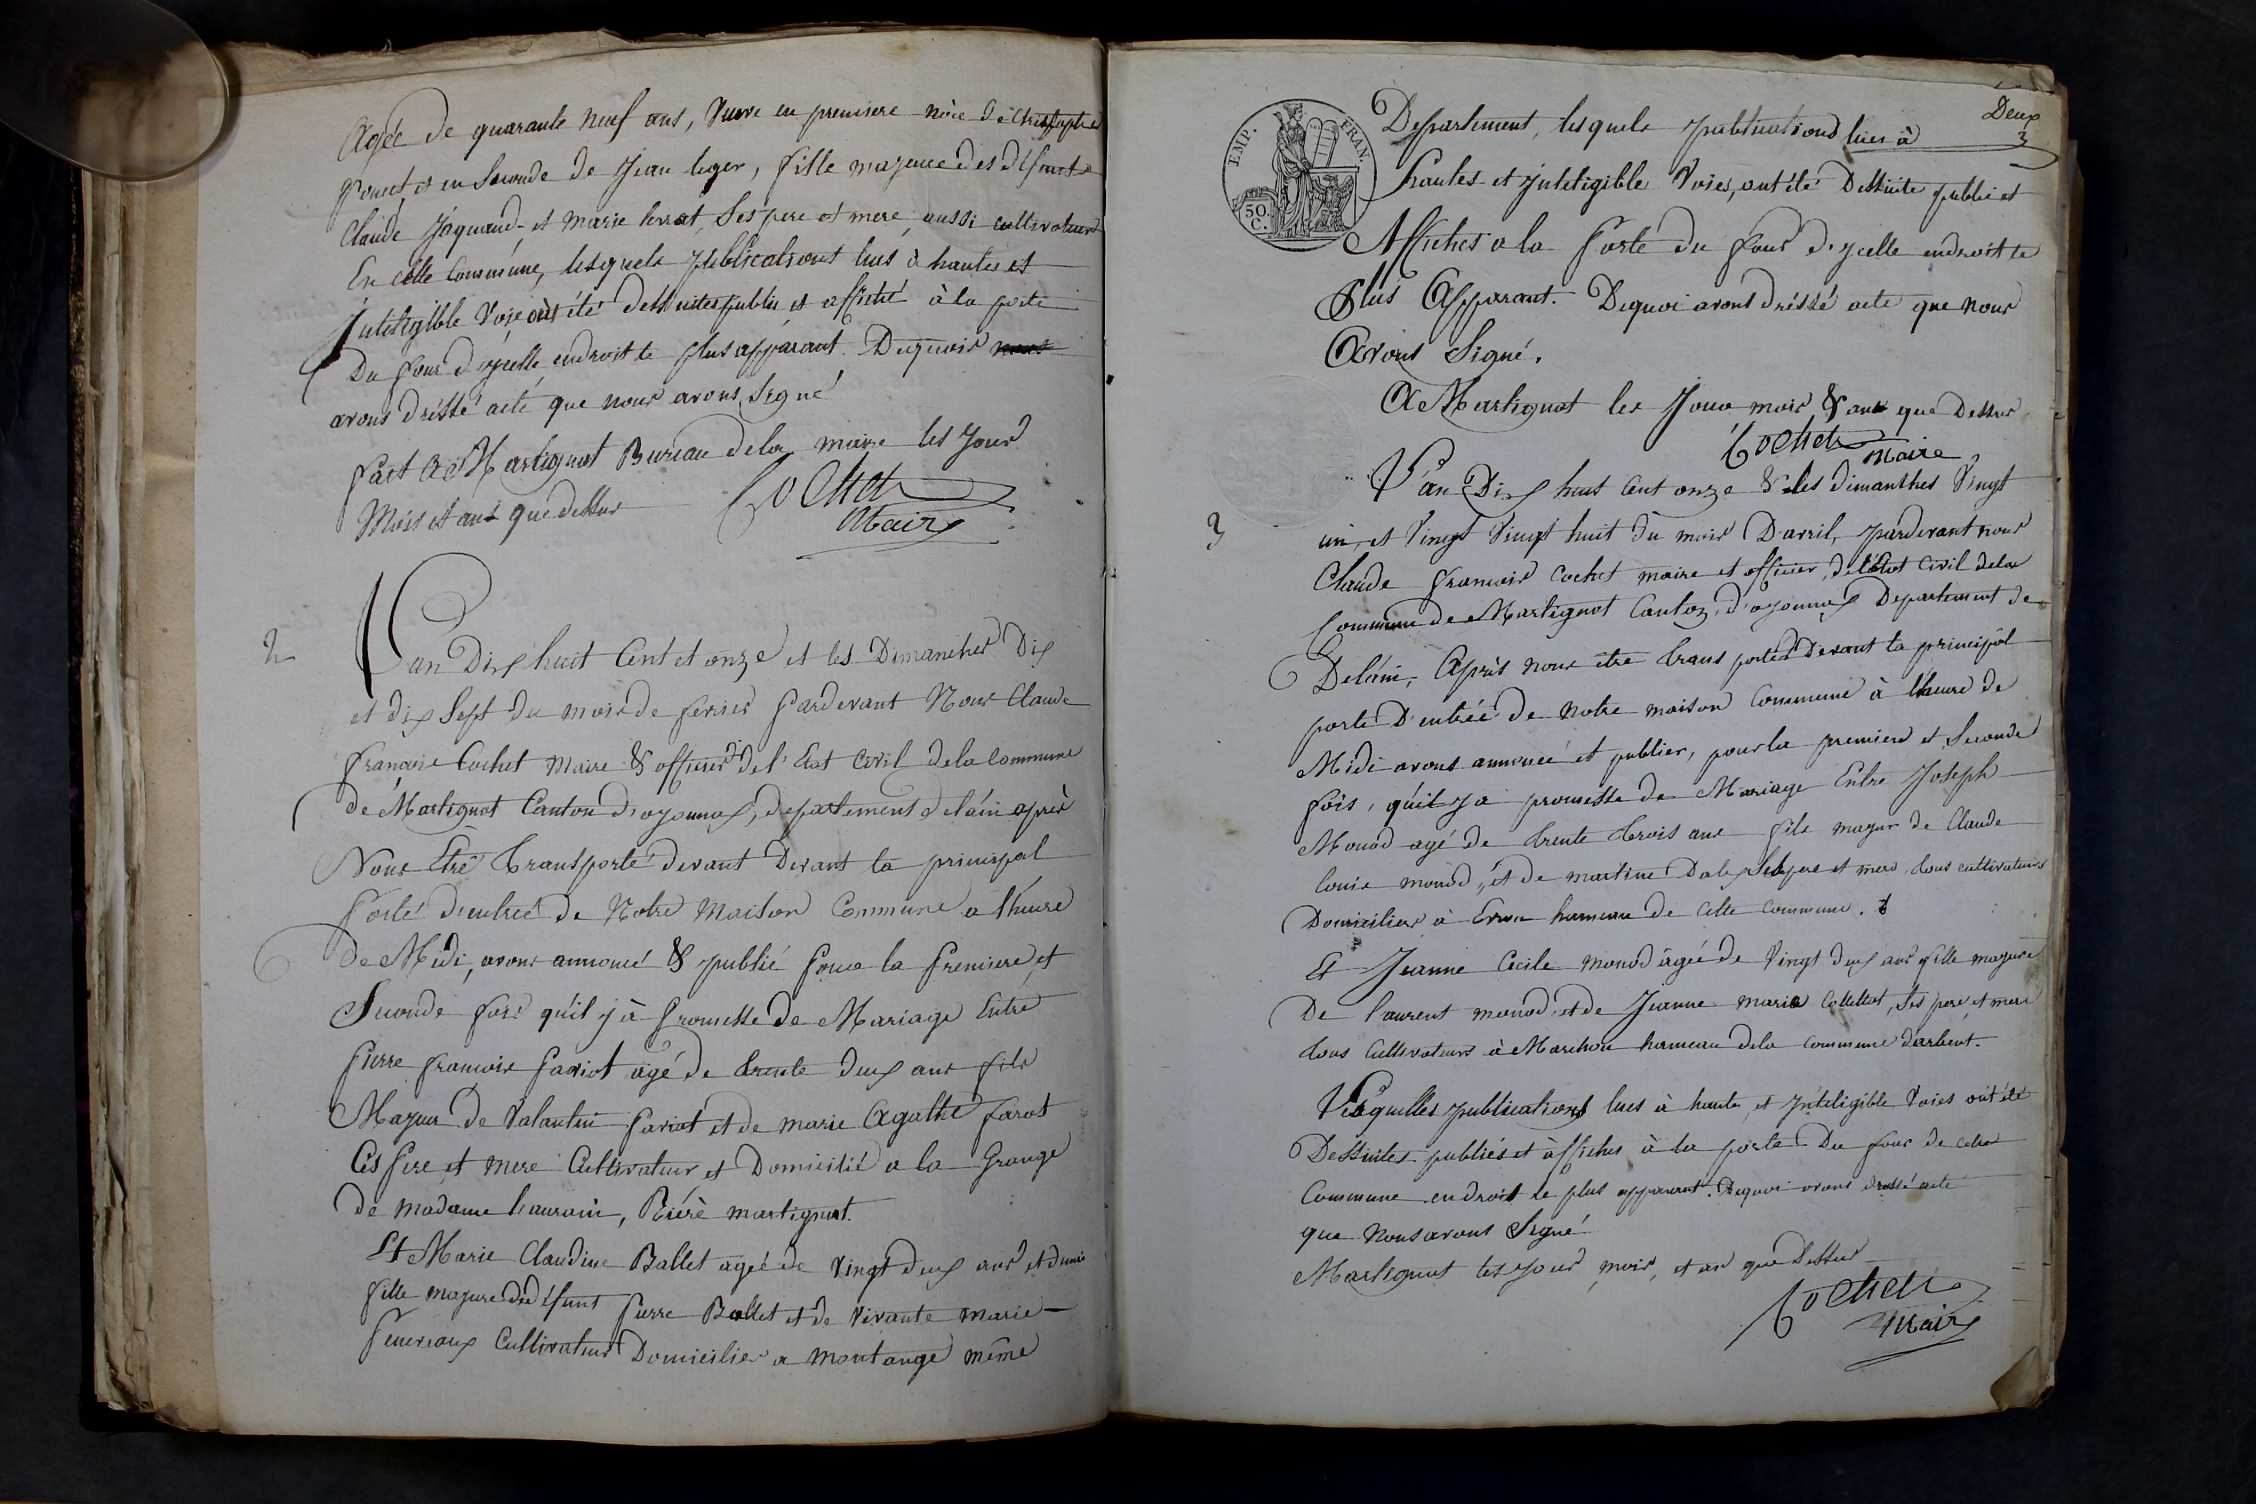 Agée de quarante neuf ans, Veuve en premiere nôce de Christophe
Poncet et en Seconde de Jean leger, fille majeure des défunts
Claude Jáquand et Marie Perrat, Ses pere et mere, aussi cultivateurs
En cette Commune, lesquels publications lues à hautes et
Inteligible Voix ont été dessuites publié et affiché à la porte
Du four d'ycelle endroit le plus apparant. Dequois
avons dréssé acte que nous avons Signé
fait A Martignat Bureau dela mairie les Jour
Mois et ans que dessus
Cochet
Maire
2
L'an Dix huit Cent et onze et les Dimanches Dix
et dix Sept du mois de fevrier Pardevant Nous Claude
François Cochet Maire & officier de l'état Civil dela Commune
de Martignat Canton d'oyonnax, departement delain après
Nous Être Transporté devant Devant la principal
Porte d'entrée de Notre Maison Commune a l'heure
De Midi, avons annoncé & publié Pour la Premiere et
Seconde fois qu'il y à Promesse de Mariage Entre
Pierre François Pariot agé de trente deux ans fils
Majeur de Valantin Pariot et de marie Agathe Parot
Ces Pere et Mere Cultivateur et Domicilié a la Grange
de madame Laurain, Riérè martignat.
Et Marie Claudine Ballet agée de Vingt deux ans et demie
fille majeure de défunt Pierre Ballet et de Vivante Marie
Cultivateurs Domiciliés a montange même
Deux
3
EMP. FRAN.
50.
C.
Departement, lesquels publications lues à
hautes et Inteligible Voies, ont été Dessuite publié et
Affiches a la Porte du four d'ycelle endroit le
Plus Apparant. Dequoi avons dréssé acte que nous
Avons Signé.
A Martignat les Jour mois & ans que Dessus
Cochet
Maire
3
L'an Dix huit Cent onze & les dimanches Vingt
un, et Vingt Vingt huit du mois D'avril, pardevant nous
Claude François Cochet maire et officier, de l'état Civil dela
Commune de Martignat Canton, d'oyonnax Departement de
Delain, Après nous être transportés Devant la principal
porte D'entrée de Notre maison Commune à l'heure de
Midi avons annoncé et publier, pour la premiere et Seconde
fois, qu'il y a promesse de Mariage Entre Joseph
Monod agé de trente trois ans fils majeur de Claude
Louis monod, et de martine Dalex Ses pere et mere tous cultivateurs
Domiciliés à hameau de cette commune.
Et Jeanne Cecile monod agée de Vingt deux ans fille majeure
De Laurent monod, et de Jeanne marie Collettat, Ses pere et mere
tous Cultivateurs à Marchon hameau dela commune darbent.
Lesquelles publications lues à haute et Inteligible Voies ont été
Dessuites publiés et affiches à la porte Du four de cette
Commune endroit le plus apparent. Dequoi avons dressé acte
que Nous avons Signé
Martignat les Jour, mois, et an que Dessus
Cochet
Maire